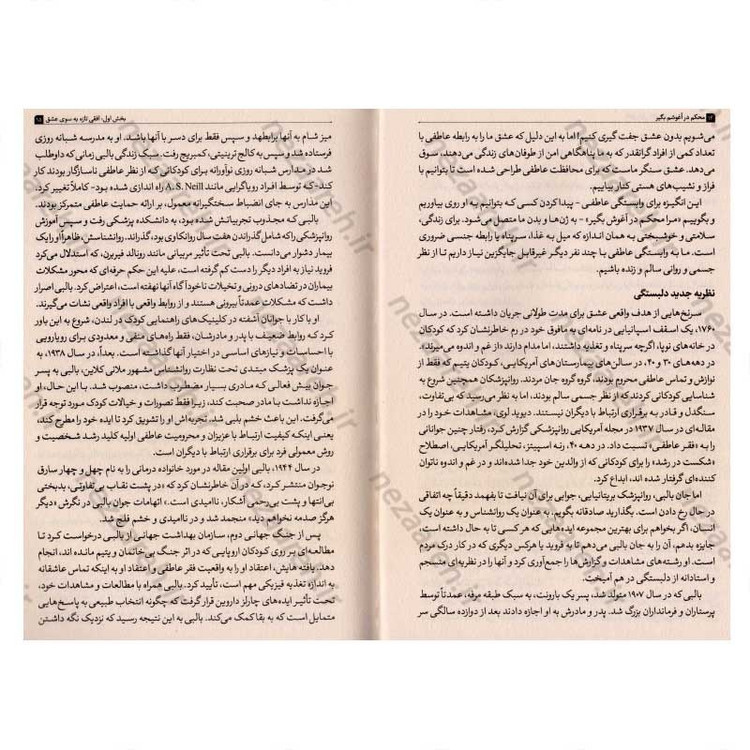 ۱۴ محکم در آغوشم بگیر
می‌شویم بدون عشق جفت گیری کنیم! اما به این دلیل که عشق ما را به رابطه عاطفی با
تعداد کمی از افراد گرانقدر که به ما پناهگاهی امن از طوفان‌های زندگی می‌دهند، سوق
می‌دهد. عشق سنگر ماست که برای محافظت عاطفی طراحی شده است تا بتوانیم با
فراز و نشیب‌های هستی کنار بیاییم.
این انگیزه برای وابستگی عاطفی - پیدا کردن کسی که بتوانیم به او روی بیاوریم
و بگوییم «مرا محکم در آغوش بگیر» - به ژن‌ها و بدن ما متصل می‌شود. برای زندگی،
سلامتی و خوشبختی به همان اندازه که میل به غذا، سرپناه یا رابطه جنسی ضروری
است. ما به وابستگی عاطفی با چند نفر دیگر غیرقابل جایگزین نیاز داریم تا از نظر
جسمی و روانی سالم و زنده باشیم.
نظریه جدید دلبستگی
سرنخ‌هایی از هدف واقعی عشق برای مدت طولانی جریان داشته است. در سال
۱۷۶۰، یک اسقف اسپانیایی در نامه‌ای به مافوق خود در رم خاطرنشان کرد که کودکان
در خانه‌های نوپا، اگرچه سرپناه و تغذیه داشتند، اما مدام دارند «از غم و اندوه می‌میرند».
در دهه‌های ۳۰ و ۴۰، در سالن‌های بیمارستان‌های آمریکایی، کودکان یتیم که فقط از
نوازش و تماس عاطفی محروم بودند، گروه گروه جان مردند. روانپزشکان همچنین شروع به
شناسایی کودکانی کردند که از نظر جسمی سالم بودند، اما به نظر می‌رسید که بی‌تفاوت،
سنگدل و قادر به برقراری ارتباط با دیگران نیستند. دیوید لوی، مشاهدات خود را در
مقاله‌ای در سال ۱۹۳۷ در مجله آمریکایی روانپزشکی گزارش کرد، رفتار چنین جوانانی
را به «فقر عاطفی» نسبت داد. در دهه ۴۰، رنه اسپیتز، تحلیلگر آمریکایی، اصطلاح
«شکست در رشد» را برای کودکانی که از والدین خود جدا شده‌اند و در غم و اندوه ناتوان
کننده‌ای گرفتار شده اند، ابداع کرد.
اما جان بالبی، روانپزشک بریتانیایی، جوابی برای آن نیافت تا بفهمد دقیقاً چه اتفاقی
در حال رخ دادن است. بگذارید صادقانه بگویم. به عنوان یک روانشناس و به عنوان یک
انسان، اگر بخواهم برای بهترین مجموعه ایده‌هایی که هر کسی تا به حال داشته است،
جایزه بدهم، آن را به جان بالبی می‌دهم تا به فروید یا هرکس دیگری که در کار درک مردم
است. او رشته‌های مشاهدات و گزارش‌ها را جمع‌آوری کرد و آنها را در نظریه‌ای منسجم
و استادانه از دلبستگی در هم آمیخت.
بالبی که در سال ۱۹۰۷ متولد شد، پسر یک بارونت، به سبک طبقه مرفه، عمدتاً توسط
پرستاران و فرمانداران بزرگ شد. پدر و مادرش به او اجازه دادند بعد از دوازده سالگی سر
بخش اول- افقی تازه به سوی عشق ۱۵
میز شام به آنها برابطهد و سپس فقط برای دسر با آنها باشد. او به مدرسه شبانه روزی
فرستاده شد و سپس به کالج ترینیتی، کمبریج رفت. سبک زندگی بالبی زمانی که داوطلب
شد در مدارس شبانه روزی نوآورانه برای کودکانی که از نظر عاطفی ناسازگار بودند کار
کند-که توسط افراد رویاگرایی مانند A. S. Neill راه اندازی شده بود- کاملاً تغییر کرد.
این مدارس به جای انضباط سختگیرانه معمول، بر ارائه حمایت عاطفی متمرکز بودند.
بالبی که مجذوب تجربیاتش شده بود، به دانشکده پزشکی رفت و سپس آموزش
روانپزشکی را که شامل گذراندن هفت سال روانکاوی بود، گذراند. روانشناسش، ظاهراً او را یک
بیمار دشوار می‌دانست. بالبی تحت تأثیر مربیانی مانند رونالد فیربرن، که استدلال می‌کرد
فروید نیاز به افراد دیگر را دست کم گرفته است، علیه این حکم حرفه‌ای که محور مشکلات
بیماران در تضادهای درونی و تخیلات ناخودآگاه آنها نهفته است، اعتراض کرد. بالبی اصرار
داشت که مشکلات عمدتاً بیرونی هستند و از روابط واقعی با افراد واقعی نشات می‌گیرند.
او با کار با جوانان آشفته در کلینیک‌های راهنمایی کودک در لندن، شروع به این باور
کرد که روابط ضعیف با پدر و مادرشان، فقط راه‌های منفی و معدودی برای رویارویی
با احساسات و نیازهای اساسی در اختیار آنها گذاشته است. بعداً، در سال ۱۹۳۸، به
عنوان یک پزشک مبتدی تحت نظارت روانشناس مشهور ملانی کلاین، بالبی به پسر
جوان بیش فعالی که مادری بسیار مضطرب داشت، منصوب شد. با این حال، او
اجازه نداشت با مادر صحبت کند، زیرا فقط تصورات و خیالات کودک مورد توجه قرار
می‌گرفت. این باعث خشم بلبی شد. تجربه‌اش او را تشویق کرد تا ایده خود را مطرح کند،
یعنی اینکه کیفیت ارتباط با عزیزان و محرومیت عاطفی اولیه کلید رشد شخصیت و
روش معمولی فرد برای برقراری ارتباط با دیگران است.
در سال ۱۹۴۴، بالبی اولین مقاله در مورد خانواده درمانی را به نام چهل و چهار سارق
نوجوان منتشر کرد، که در آن خاطرنشان کرد که «در پشت نقاب بی‌تفاوتی، بدبختی
بی‌انتها و پشت بی‌رحمی آشکار، ناامیدی است.» اتهامات جوان بالبی در نگرش «دیگر
هرگز صدمه نخواهم دید» منجمد شد و در ناامیدی و خشم فلج شد.
پس از جنگ جهانی دوم، سازمان بهداشت جهانی از بالبی درخواست کرد تا
مطالعه‌ای بر روی کودکان اروپایی که در اثر جنگ بی‌خانمان و یتیم مانده اند، انجام
دهد. یافته هایش، اعتقاد او را به واقعیت فقر عاطفی و اعتقاد او به اینکه تماس عاشقانه
به اندازه تغذیه فیزیکی مهم است، تأیید کرد. بالبی همراه با مطالعات و مشاهدات خود،
تحت تأثیر ایده‌های چارلز داروین قرار گرفت که چگونه انتخاب طبیعی به پاسخ‌هایی
متمایل است که به بقا کمک می‌کند. بالبی به این نتیجه رسید که نزدیک نگه داشتن